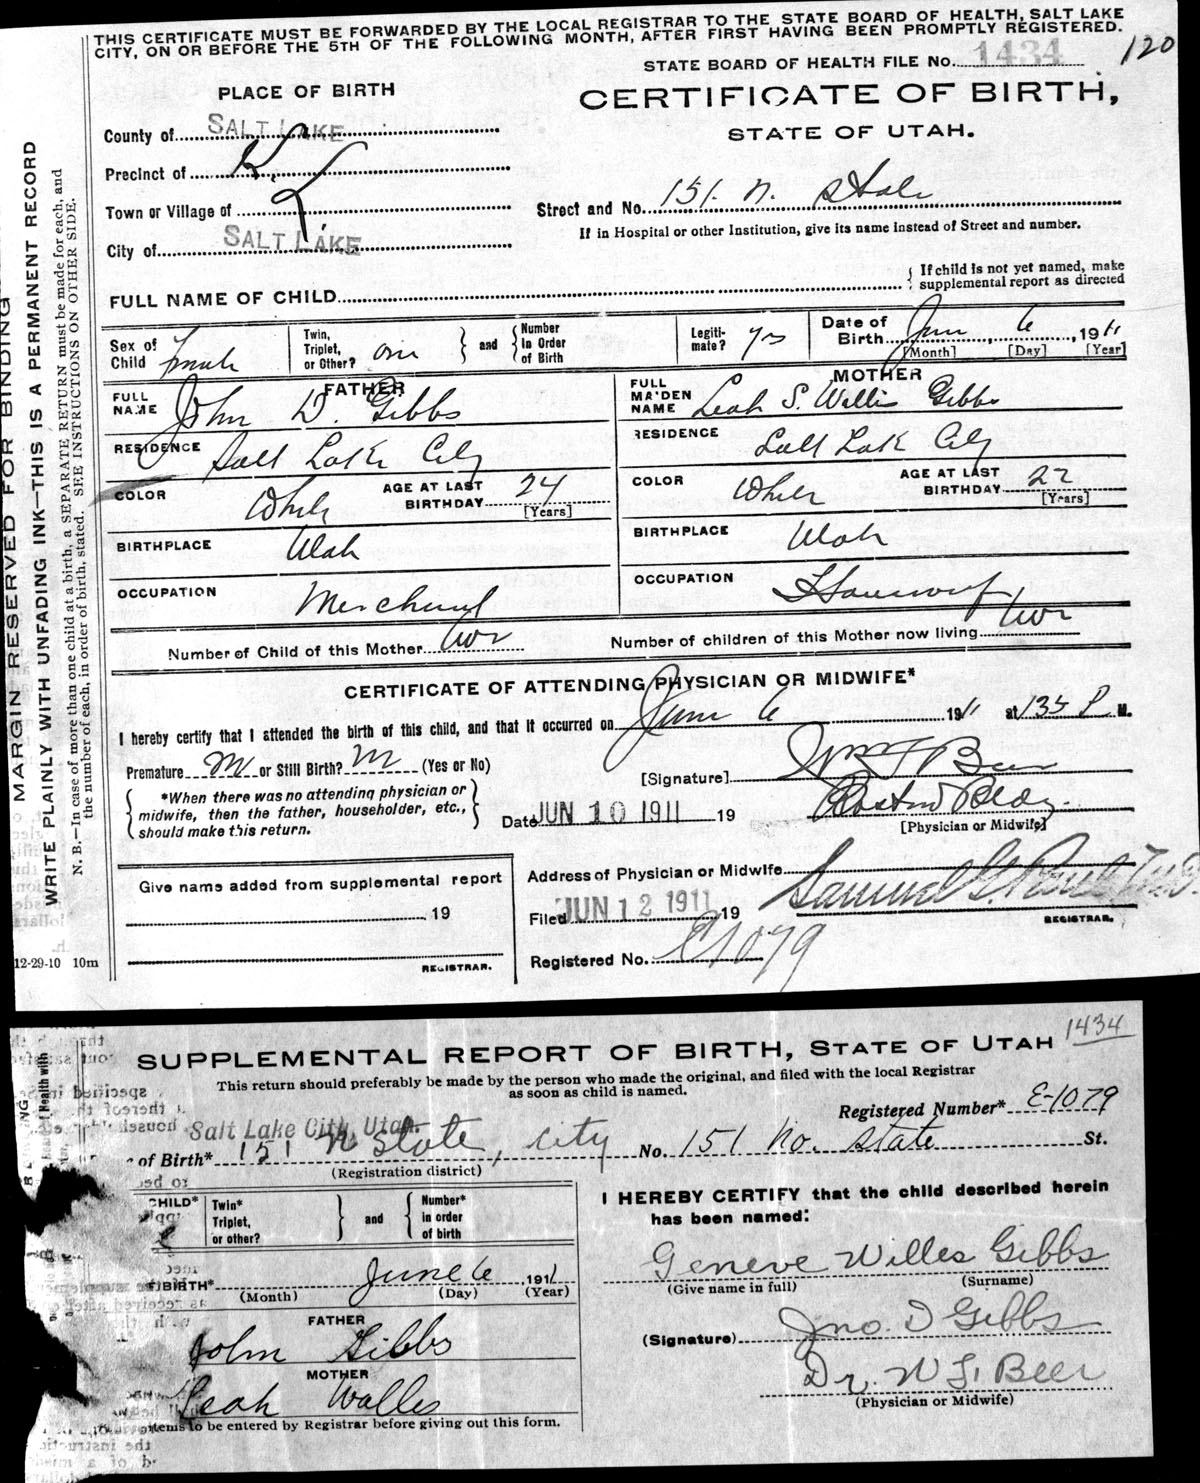 THIS CERTIFICATE MUST BE FORWARDED BY THE LOCAL REGISTRAR TO THE STATE BOARD OF HEALTH, SALT LAKE
CITY, ON OR BEFORE THE 5TH OF THE FOLLOWING MONTH, AFTER FIRST HAVING BEEN PROMPTLY REGISTERED.
120
STATE BOARD OF HEALTH FILE No. 1434
PLACE OF BIRTH
CERTIFICATE OF BIRTH,
STATE OF UTAH.
County of SALT LAKE
Precinct of
Town or Village of
City of SALT LAKE
Street and No. 151. N. State
If in Hospital or other Institution, give its name instead of Street and number.
FULL NAME OF CHILD
If child is not yet named, make
supplemental report as directed
Sex of Child Female
Twin, Triplet, or Other? one
and
Number in Order of Birth
Legiti- mate? Yes
Date of Birth June 6, 1911
[Month] [Day] [Year]
FATHER
FULL NAME John D. Gibbs
RESIDENCE Salt Lake City
COLOR White AGE AT LAST BIRTHDAY 24 [Years]
BIRTHPLACE Utah
OCCUPATION Merchant
MOTHER
FULL MAIDEN NAME Leah S. Willis Gibbs
RESIDENCE Salt Lake City
COLOR White AGE AT LAST BIRTHDAY 22 [Years]
BIRTHPLACE Utah
OCCUPATION Housewife
Number of Child of this Mother two
Number of children of this Mother now living two
CERTIFICATE OF ATTENDING PHYSICIAN OR MIDWIFE*
I hereby certify that I attended the birth of this child, and that it occurred on June 6 1911 at 135 P M.
Premature no or Still Birth? no (Yes or No)
*When there was no attending physician or
midwife, then the father, householder, etc.,
should make this return.
[Signature] Wm F Beer
Date JUN 10 1911 19
Boston Bldg.
[Physician or Midwife]
Give name added from supplemental report
19
REGISTRAR.
Address of Physician or Midwife
Filed JUN 12 1911 19
Samuel G. Paul M.D.
REGISTRAR.
Registered No. E1079
MARGIN RESERVED FOR BINDING
WRITE PLAINLY WITH UNFADING INK—THIS IS A PERMANENT RECORD
N. B.—In case of more than one child at a birth, a SEPARATE RETURN must be made for each, and
the number of each, in order of birth, stated. SEE INSTRUCTIONS ON OTHER SIDE.
12-29-10 10m
1434
SUPPLEMENTAL REPORT OF BIRTH, STATE OF UTAH
This return should preferably be made by the person who made the original, and filed with the local Registrar
as soon as child is named.
Registered Number* E-1079
Salt Lake City, Utah.
of Birth* 151 N State, City No. 151 No. State St.
(Registration district)
CHILD*
Twin* Triplet, or other?
and
Number* in order of birth
BIRTH* June 6, 1911
(Month) (Day) (Year)
FATHER
John Gibbs
MOTHER
Leah Walles
items to be entered by Registrar before giving out this form.
I HEREBY CERTIFY that the child described herein
has been named:
Geneve Willes Gibbs
(Give name in full) (Surname)
(Signature) Jno. D Gibbs
Dr. W F. Beer
(Physician or Midwife)